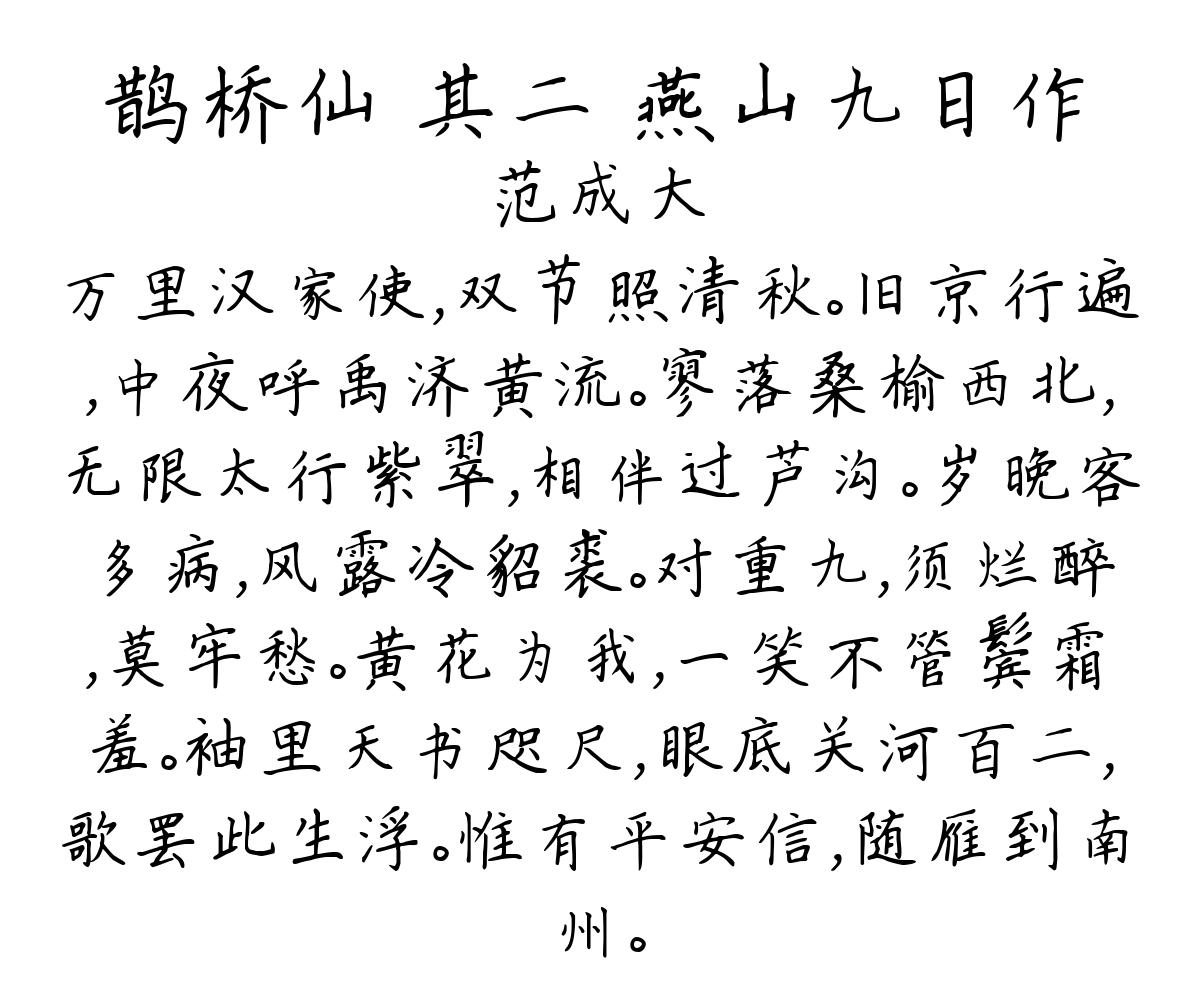 鹊桥仙 其二 燕山九日作
范成大
万里汉家使,双节照清秋。旧京行遍
,中夜呼禹济黄流。寥落桑榆西北,
无限太行紫翠,相伴过芦沟。岁晚客
多病,风露冷貂裘。对重九,须烂醉
,莫牢愁。黄花为我,一笑不管鬓霜
羞。袖里天书咫尺,眼底关河百二,
歌罢此生浮。惟有平安信,随雁到南
州。